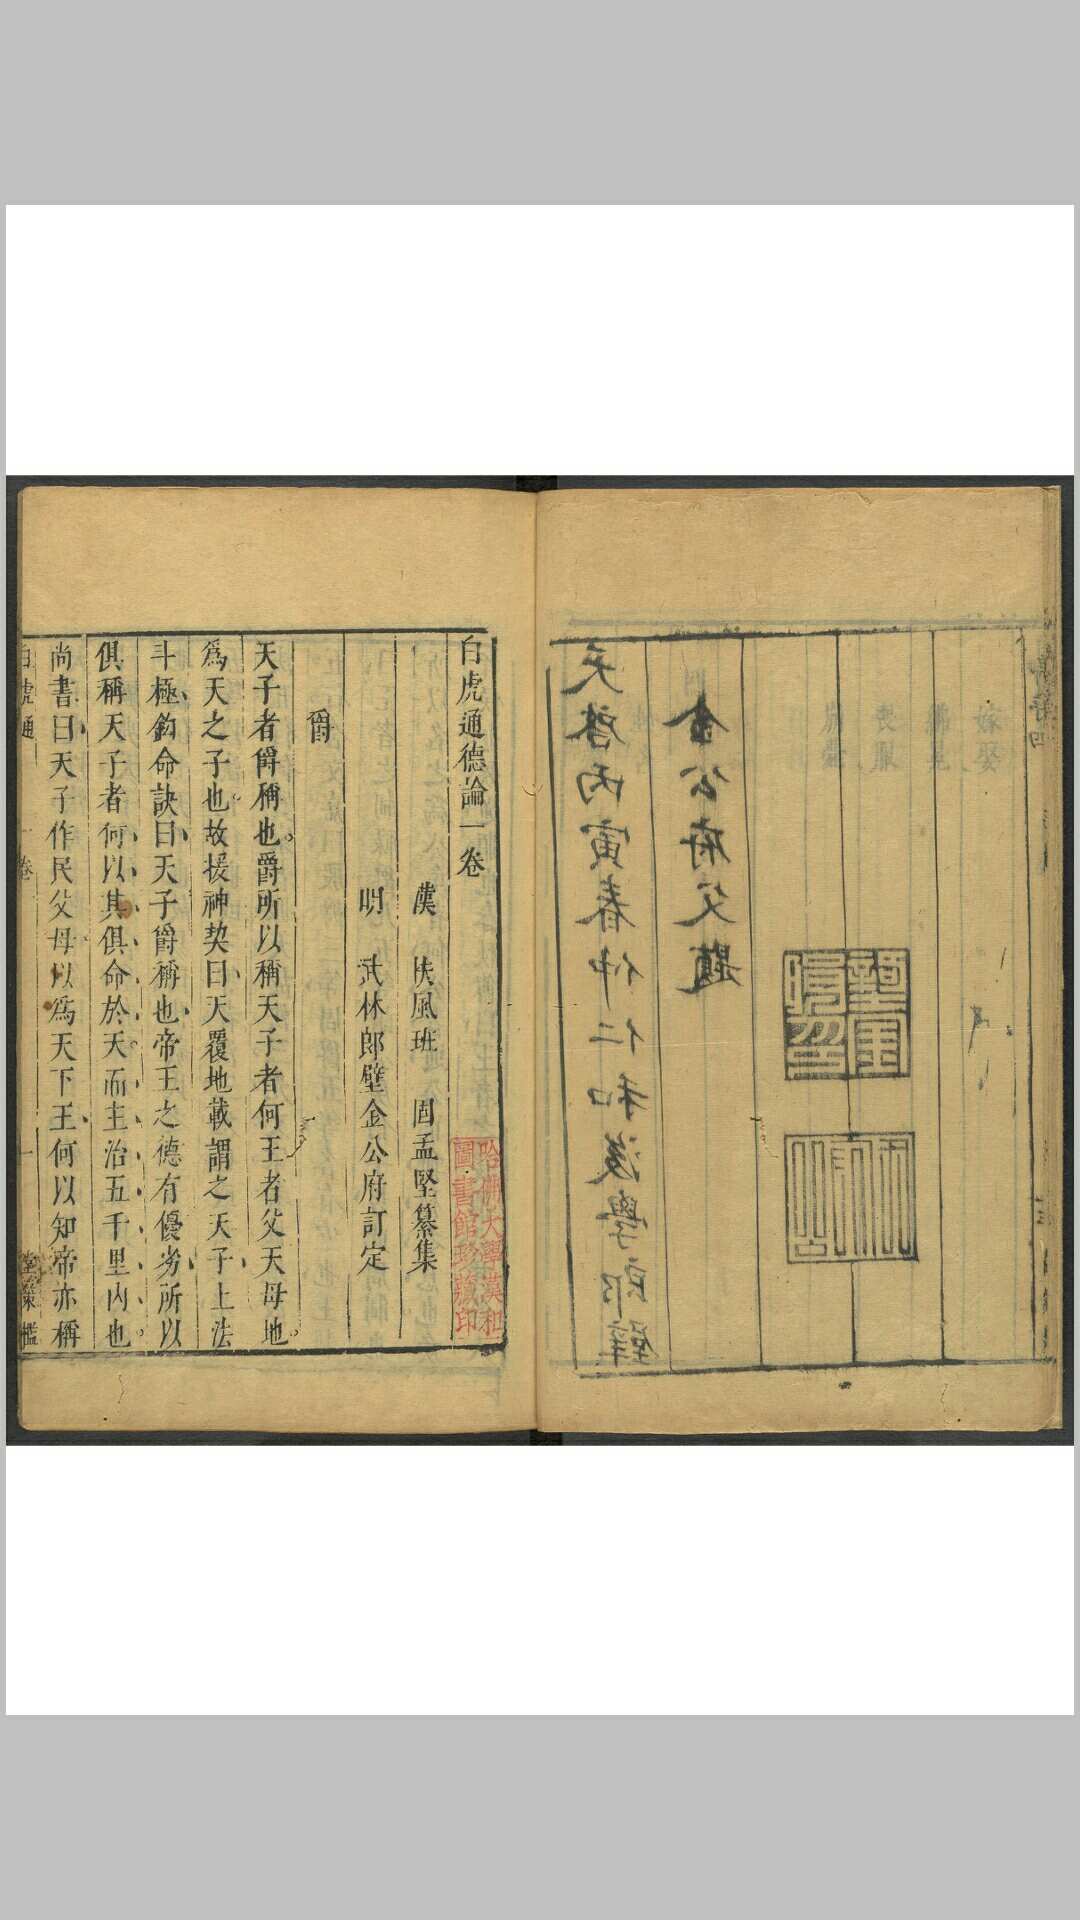 天啓丙寅春仲仁和後學郎壁
金公府父題
白虎通德論一卷
漢 扶風班 固孟堅纂集
明 武林郎壁金公府訂定
爵
天子者爵稱也。爵所以稱天子者何王者父天母地。
爲天之子也。故援神契曰天覆地載謂之天子上法
斗極鈎命訣曰天子爵稱也帝王之德有優劣所以
俱稱天子者何以其俱命於天而主治五千里內也。
尚書曰天子作民父母以爲天下王何以知帝亦稱
白虎通 一卷 一 堂策檻
哈佛大學漢和
圖書館珍藏印